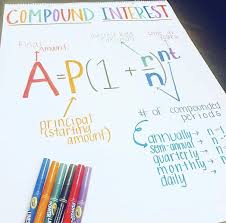 COMPOUND INTEREST
Final
Amount
A=P(1 + r/n)^nt
principal
(starting
amount)
# of compounded
periods
annually → n=1
semi-annual → n
quarterly → n
monthly → n
daily